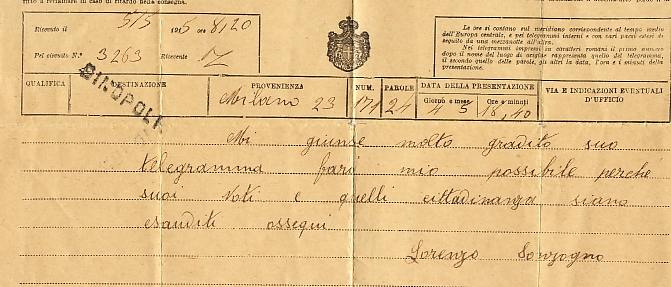 titto a reclamare in caso di ritardo nella consegna
Ricevuto il 5/5 1915 ore 8,20
Pel circuito N.º 3263 Ricevente
Le ore si contano sul meridiano corrispondente al tempo medio
dell'Europa centrale, e pei telegrammi interni e con vari paesi esteri di
seguito da una mezzanotte all'altra.
Nei telegrammi impressi in caratteri romani il primo numero
dopo il nome del luogo di origine rappresenta quello del telegramma,
il secondo quello delle parole, gli altri la data, l'ora e i minuti della
presentazione.
QUALIFICA DESTINAZIONE PROVENIENZA NUM. PAROLE DATA DELLA PRESENTAZIONE VIA E INDICAZIONI EVENTUALI
D'UFFICIO
Giorno e mese Ore e minuti
Milano 23 171 24 4 5 16,10
Mi giunse molto gradito suo
telegramma farò mio possibile perche
suoi voti e quelli cittadinanza siano
esauditi ossequi
Lorenzo Sonzogno